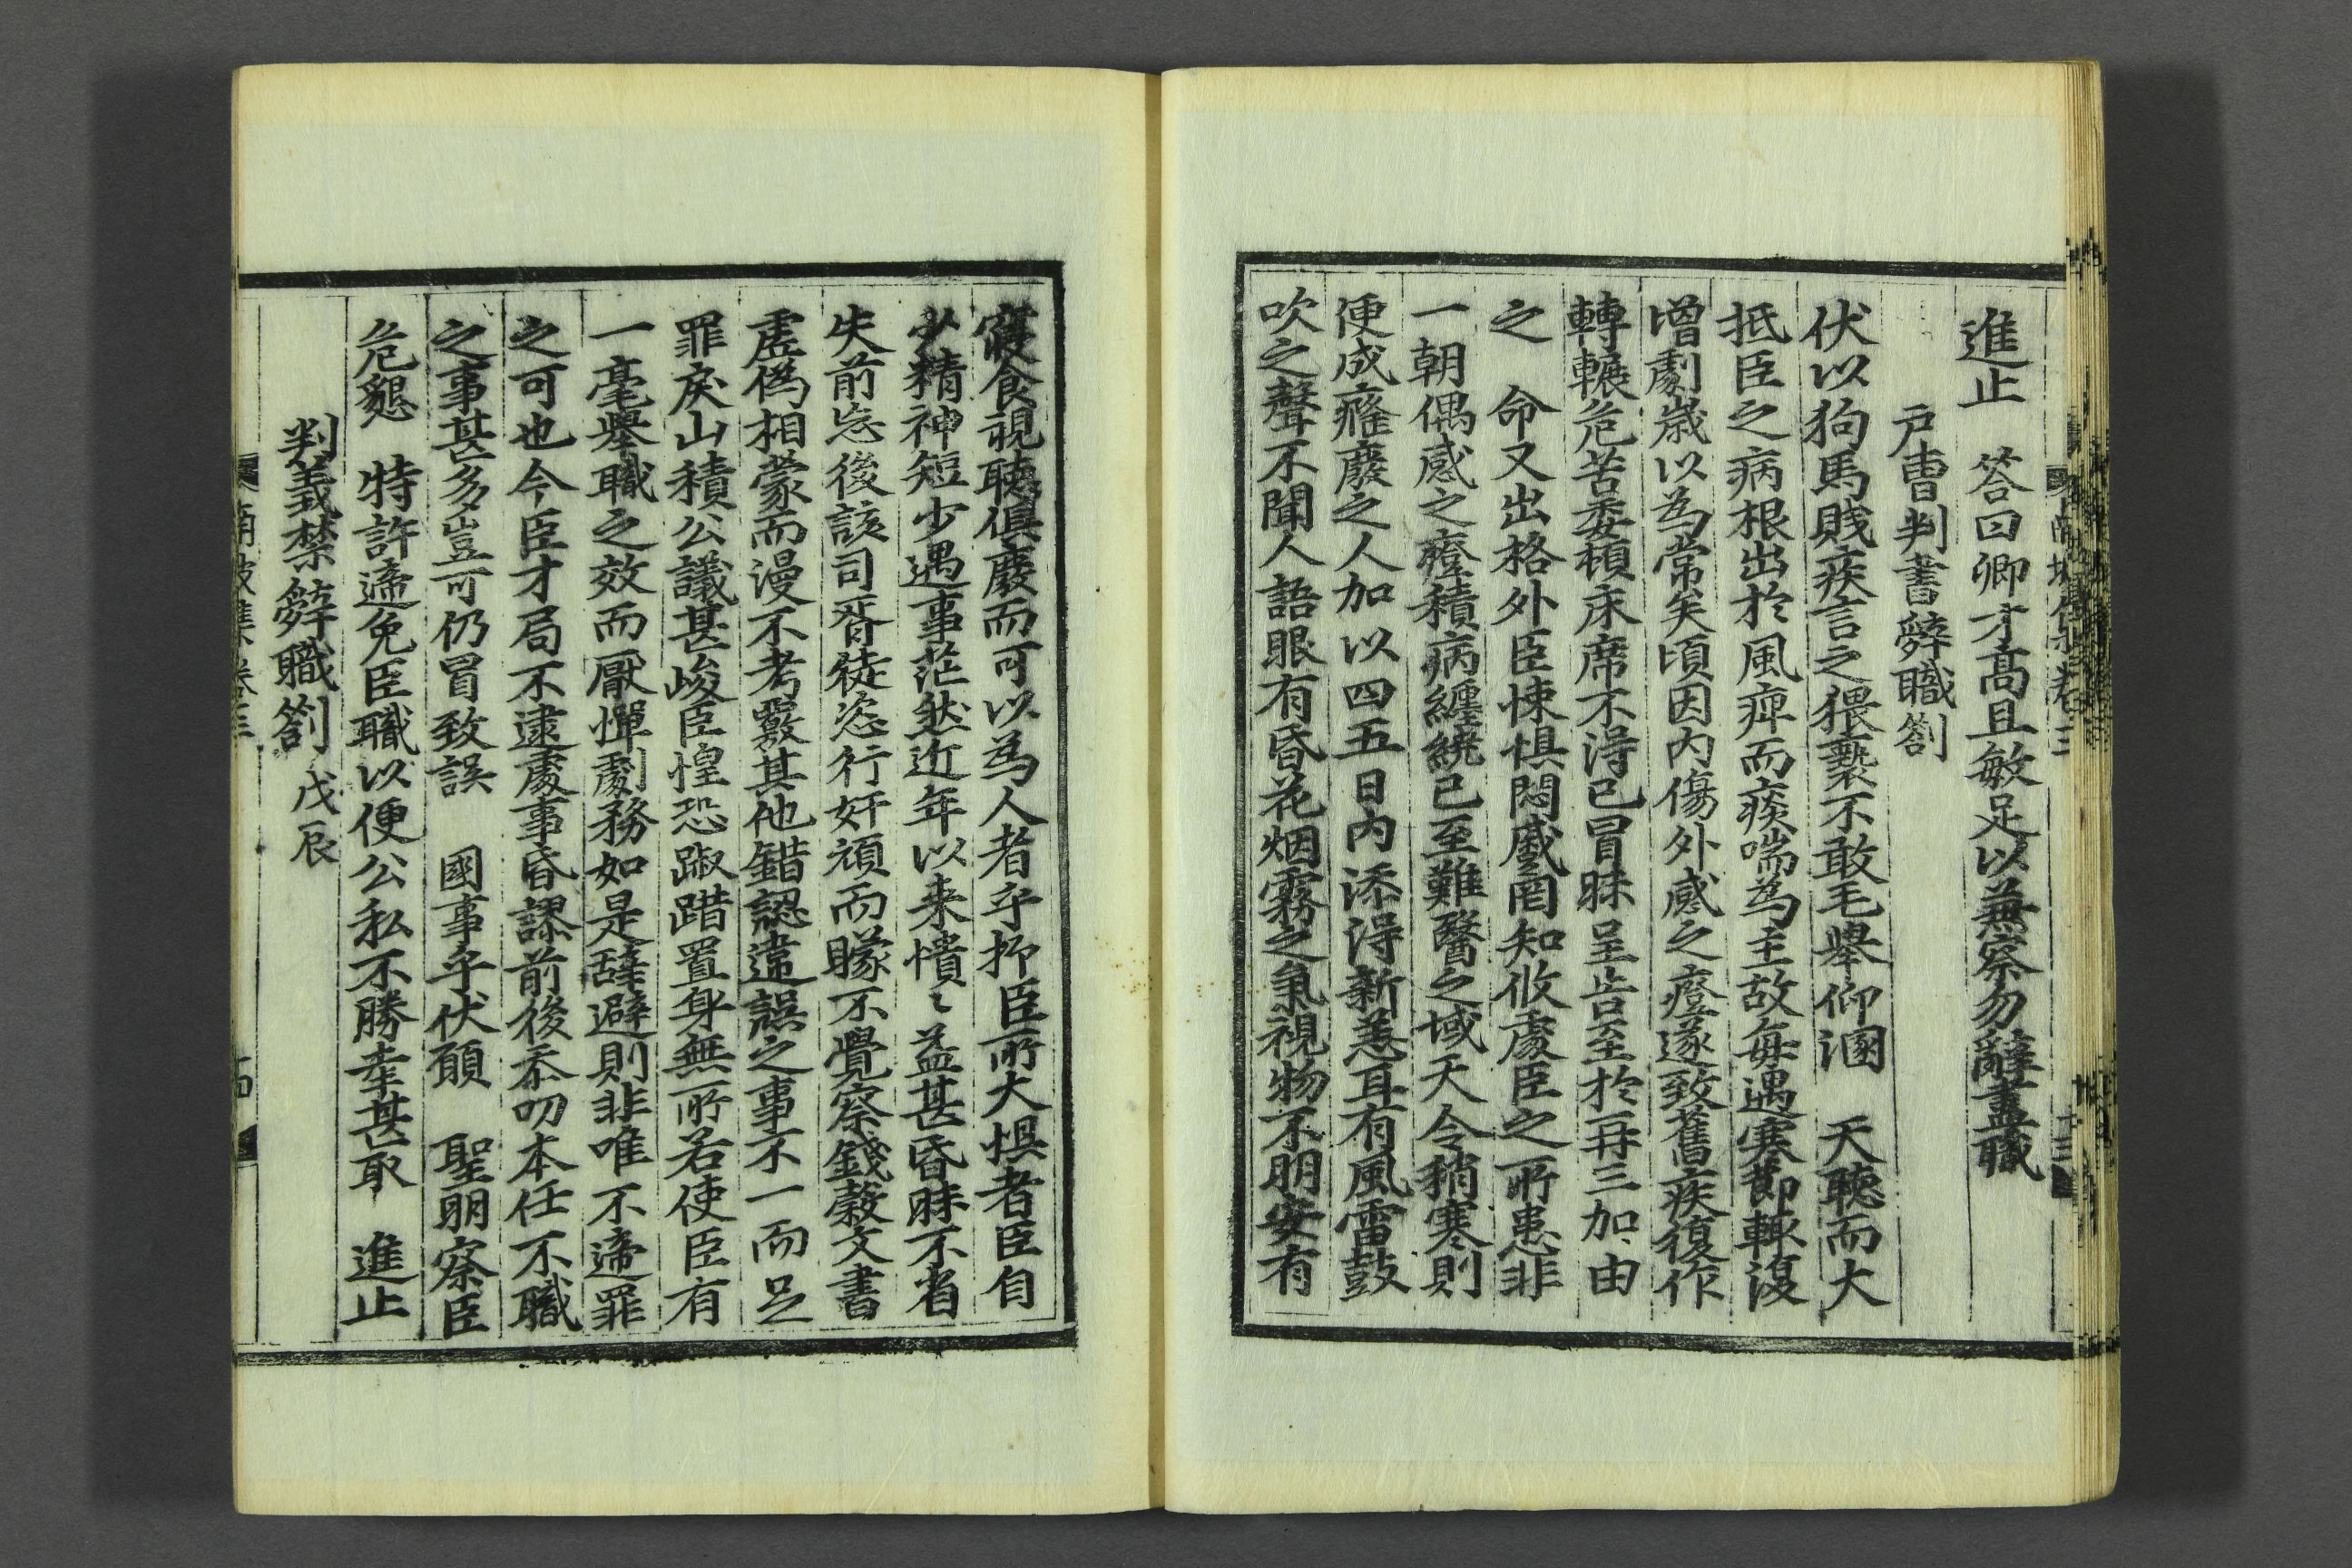 進止 答曰卿才高且敏足以兼察勿辭盡職
戶曹判書辭職箚
伏以狗馬賤疾言之猥褻不敢毛擧仰溷 天聽而大
抵臣之病根出於風痺而痰喘為主故每遇寒節輒復
增劇歲以為常矣頃因內傷外感之證遂致舊疾復作
轉輾危苦委頓床席不得已冒昧呈告至於再三加由
之 命又出格外臣悚惧悶蹙罔知攸處臣之所患非
一朝偶感之證積病纏繞已至難醫之域天令稍寒則
便成癃廢之人加以四五日內添得新恙耳有風雷鼓
吹之聲不聞人語眼有昏花烟霧之氣視物不明安有
寢食視聽俱廢而可以為人者乎抑臣所大惧者臣自
少精神短少遇事茫然近年以来憒〻益甚昏昧不省
失前忘後該司胥徒恣行奸頑而矇不覺察錢穀文書
虛僞相蒙而漫不考覈其他錯認違誤之事不一而足
罪戾山積公議甚峻臣惶恐踧踖置身無所若使臣有
一毫擧職之效而厭憚劇務如是辭避則非唯不遞罪
之可也今臣才局不逮處事昏謬前後忝叨本任不職
之事甚多豈可仍冒致誤 國事乎伏願 聖明察臣
危懇 特許遞免臣職以便公私不勝幸甚取 進止
判義禁辭職箚 戊辰
南坡集卷三